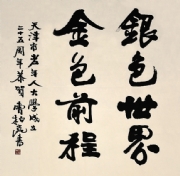 銀色世界
金色前程
天津市老年人大學成立
二十五周年恭賀